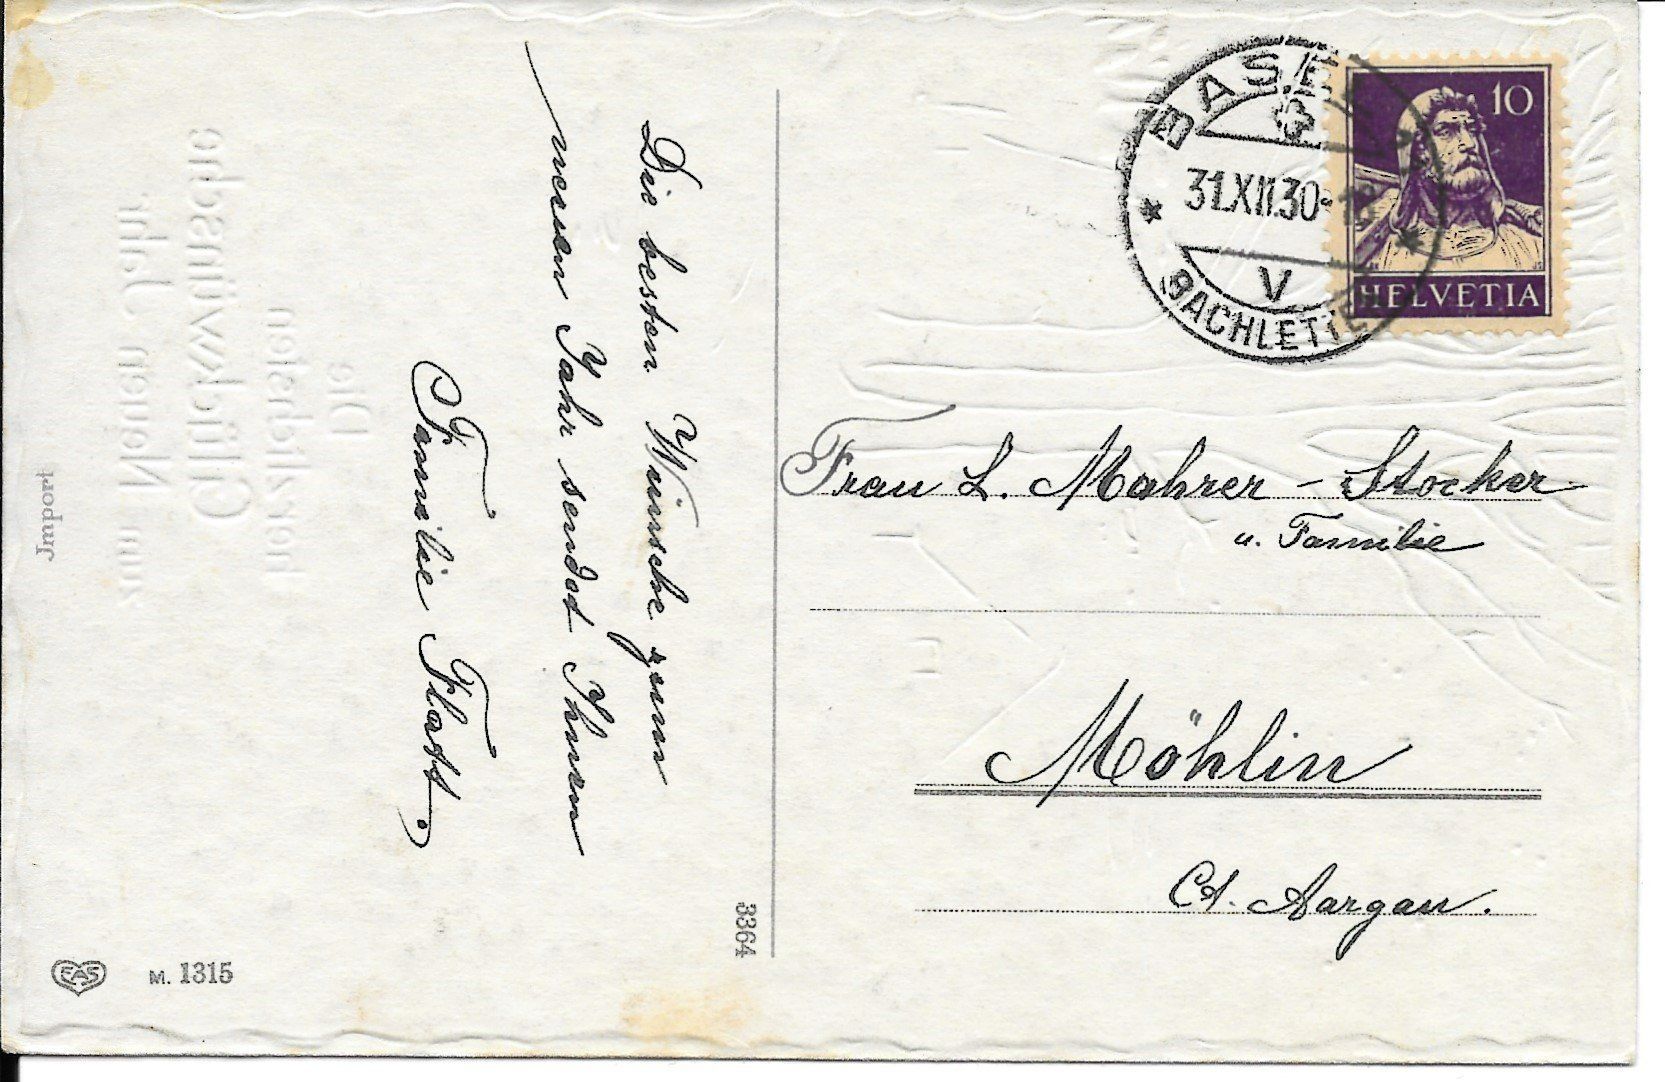 Die besten Wünsche zum
neuen Jahr sendet Ihnen
Familie Flatt.
Die
herzlichsten
Glückwünsche
zum Neuen Jahr
Jmport
EAS
M. 1315
3364
BASEL
31.XII.30
V
BACHLETTEN
10
HELVETIA
Frau L. Mahrer - Stocker
u. Familie
Möhlin
Ct. Aargau.